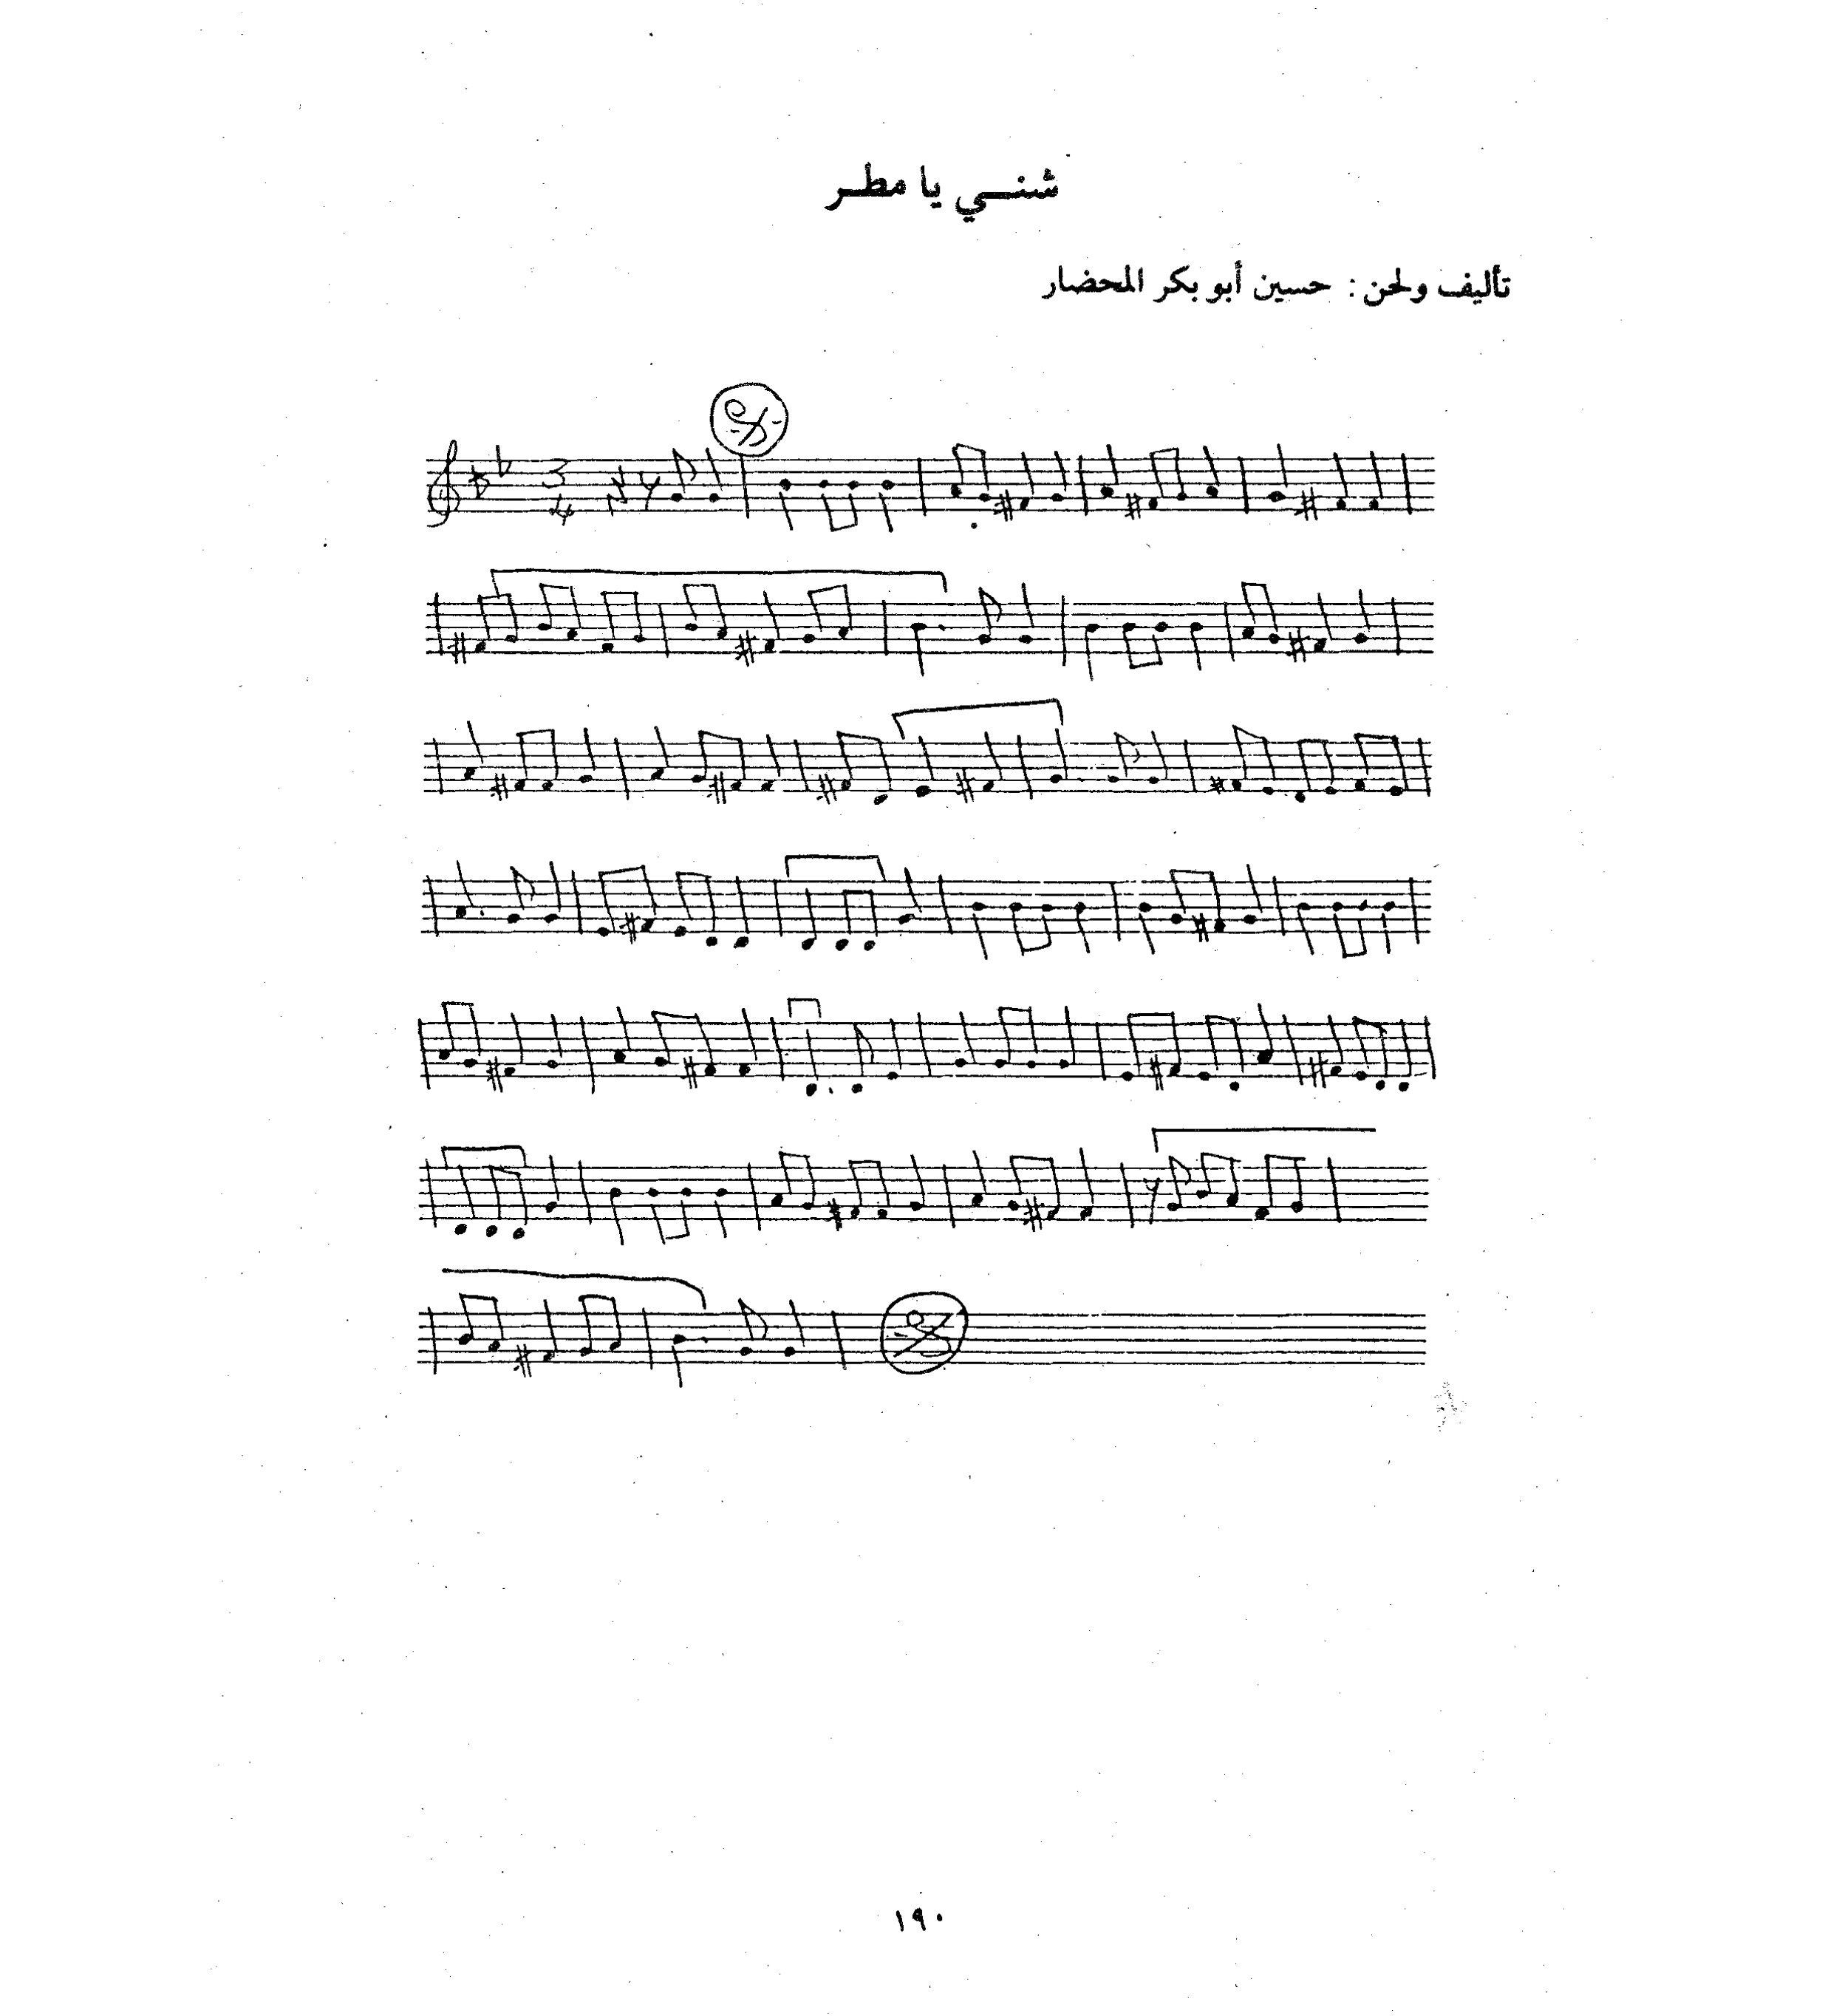 شنـــي يا مطــر
تأليف ولحن : حسين أبو بكر المحضار
3
4
١٩٠